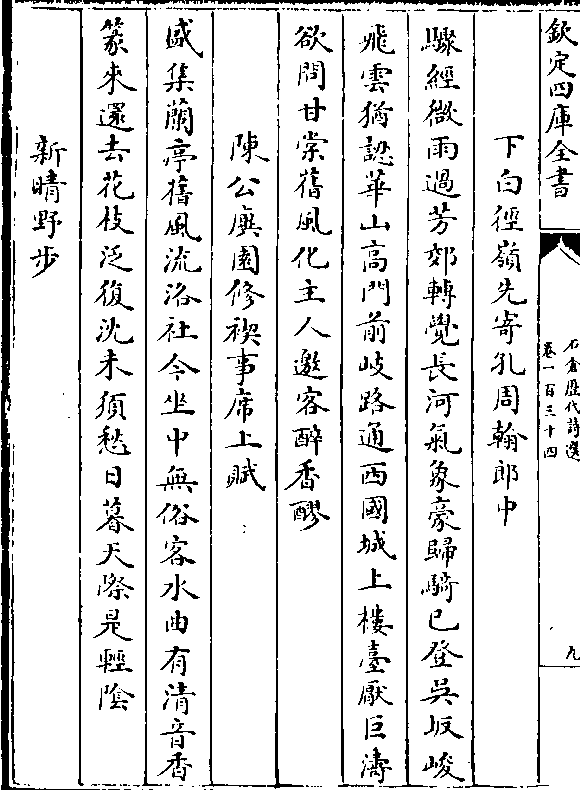 欽定四庫全書
石倉歷代詩選
卷一百三十四
九
下白徑嶺先寄孔周翰郎中
驟經微雨過芳郊轉覺長河氣象豪歸騎已登吳坂峻
飛雲猶認華山高門前岐路通西國城上樓臺厭巨濤
欲問甘棠舊風化主人邀客醉香醪
陳公廙園修禊事席上賦
盛集蘭亭舊風流洛社今坐中無俗客水曲有清音香
篆來還去花枝泛復沈未須愁日暮天際是輕陰
新晴野步